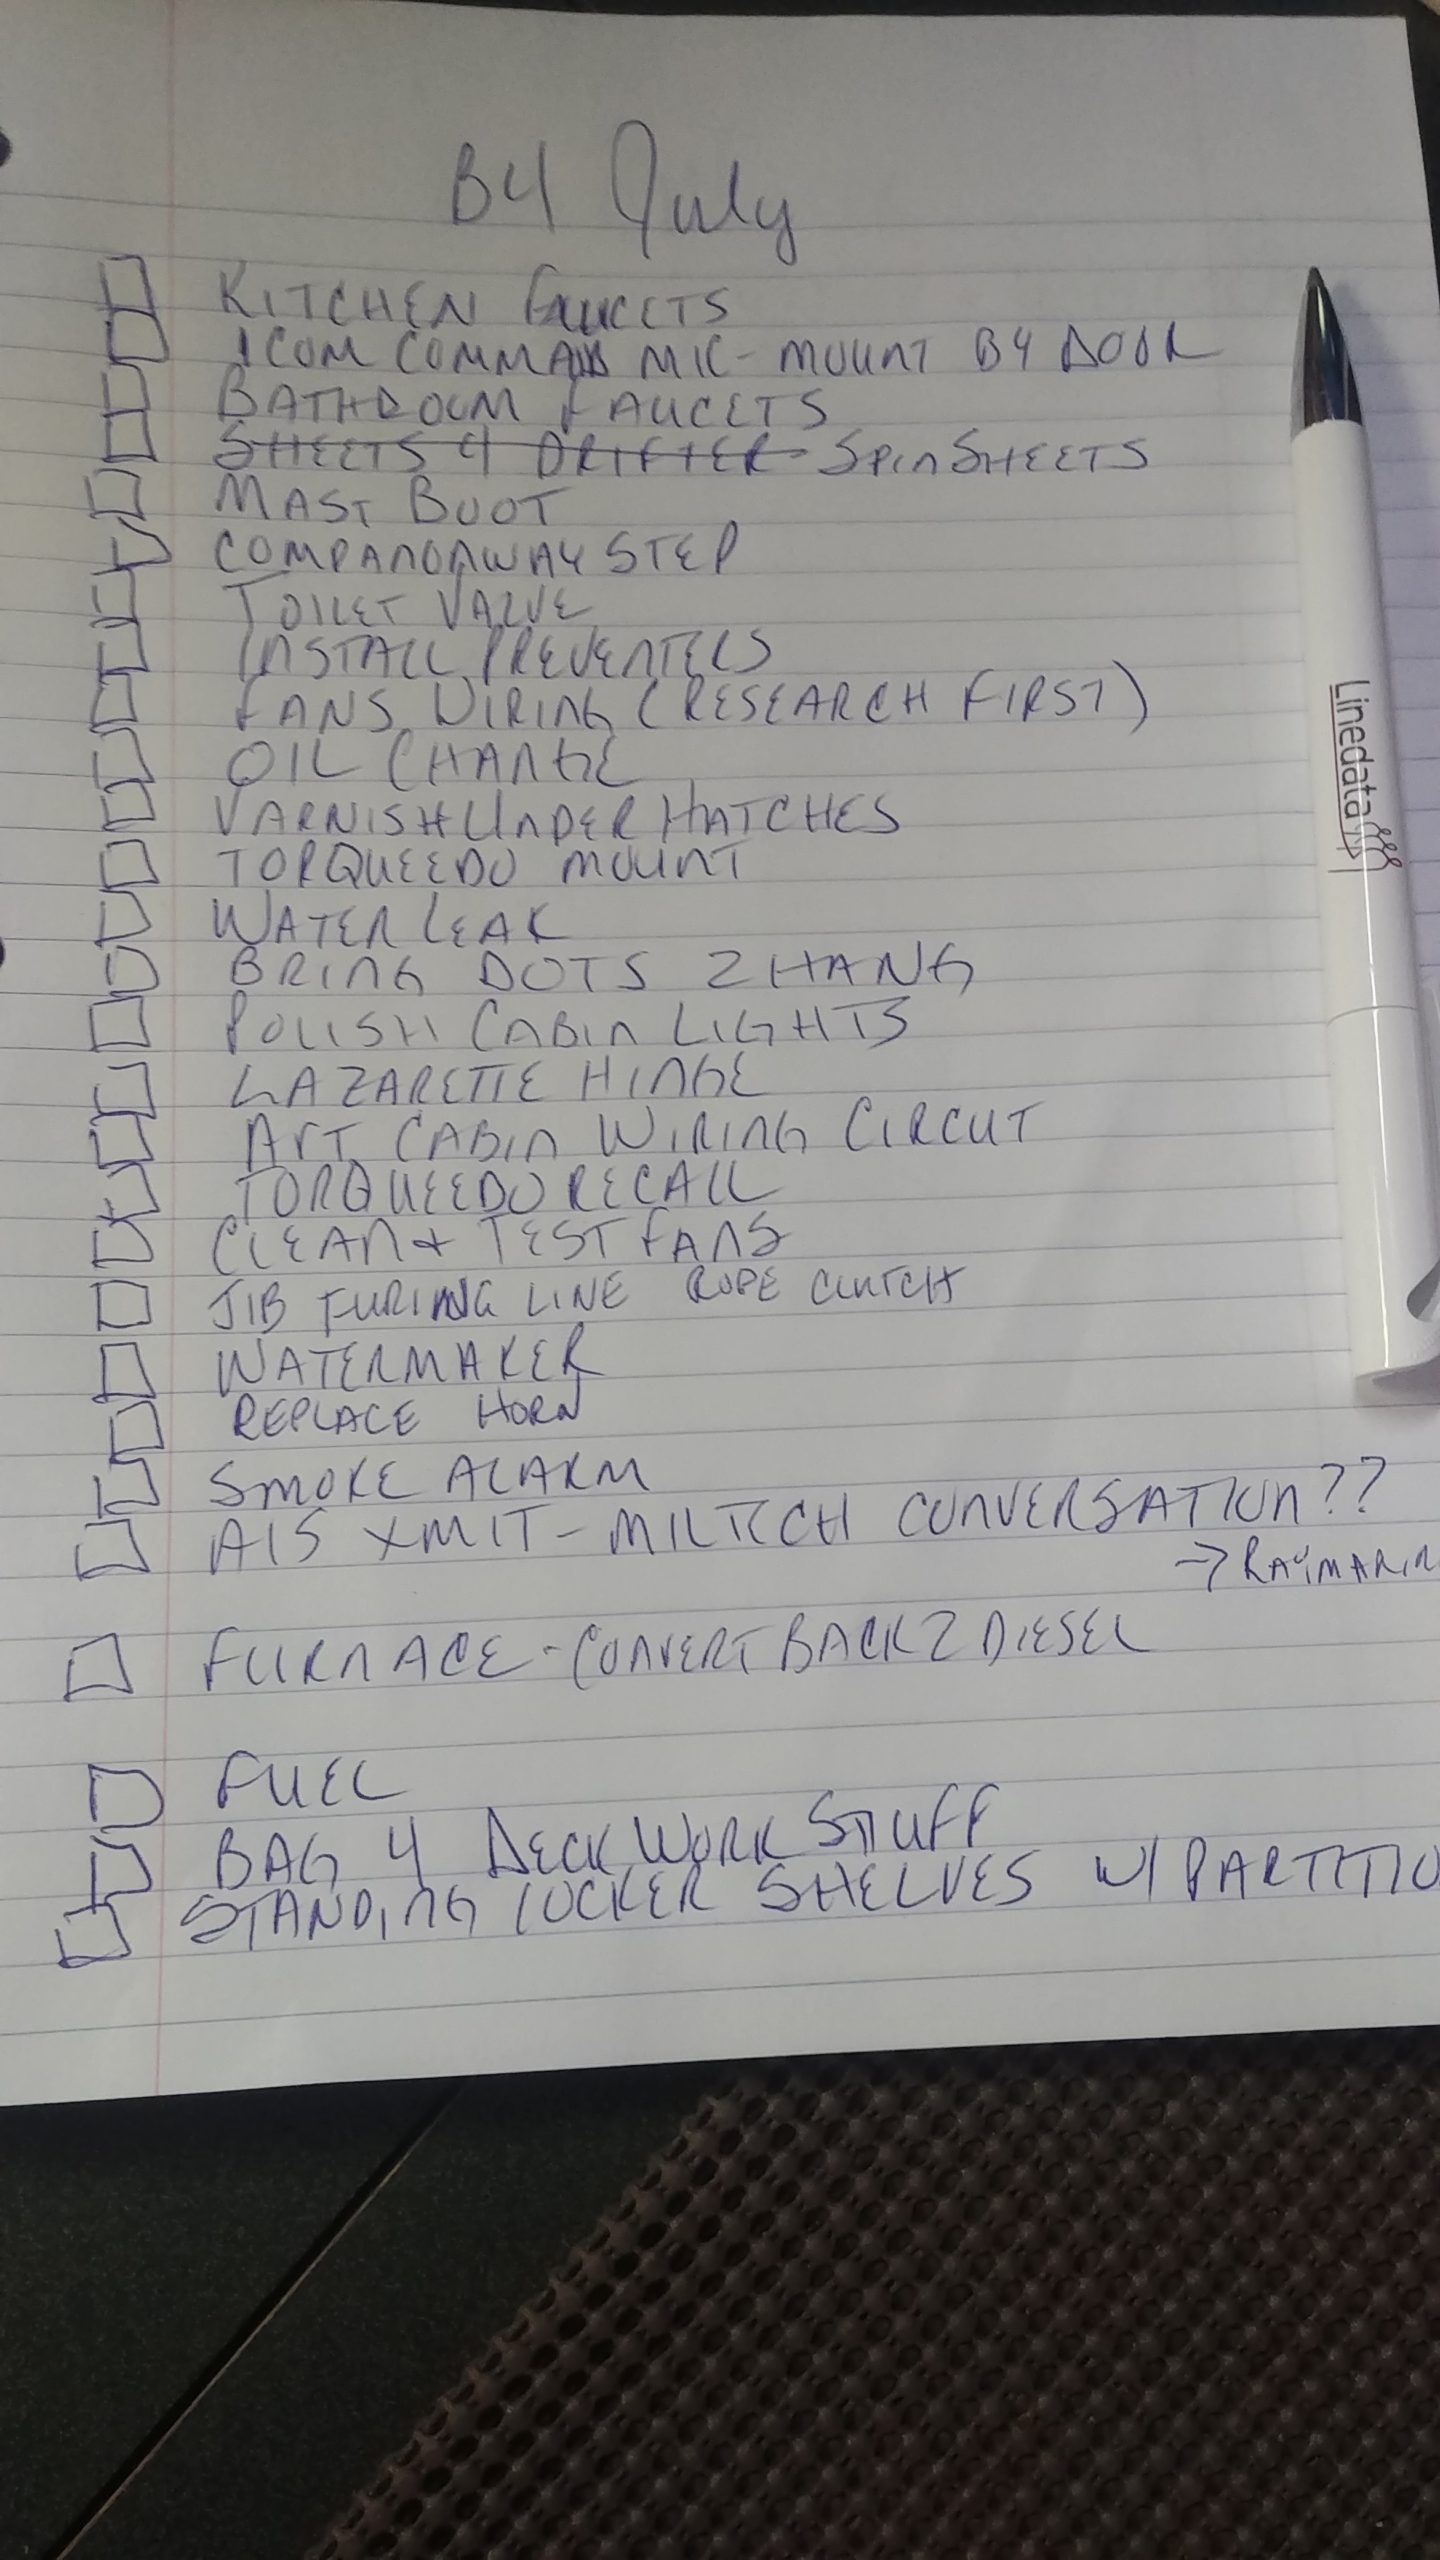 B4 July
KITCHEN FAUCETS
ICOM COMMAND MIC - MOUNT B4 DOOR
BATHROOM FAUCETS
SHEETS 4 DRIFTER SPINSHEETS
MAST BOOT
COMPANONWAY STEP
TOILET VALVE
INSTALL PREVENTERS
FANS WIRING (RESEARCH FIRST)
OIL CHANGE
VARNISH UNDER HATCHES
TORQUEEDO MOUNT
WATER LEAK
BRING DOTS 2 HANG
POLISH CABIN LIGHTS
LAZARETTE HINGE
AFT CABIN WIRING CIRCUT
TORQUEEDO RECALL
CLEAN + TEST FANS
JIB FURING LINE ROPE CLUTCH
WATERMAKER
REPLACE HORN
SMOKE ALARM
AIS XMIT - MILTECH CONVERSATION??
→ RAYMARIN
FURNACE - CONVERT BACK 2 DIESEL
FUEL
BAG 4 DECK WORK STUFF
STANDING LOCKER SHELVES W/ PARTITIO
Linedata